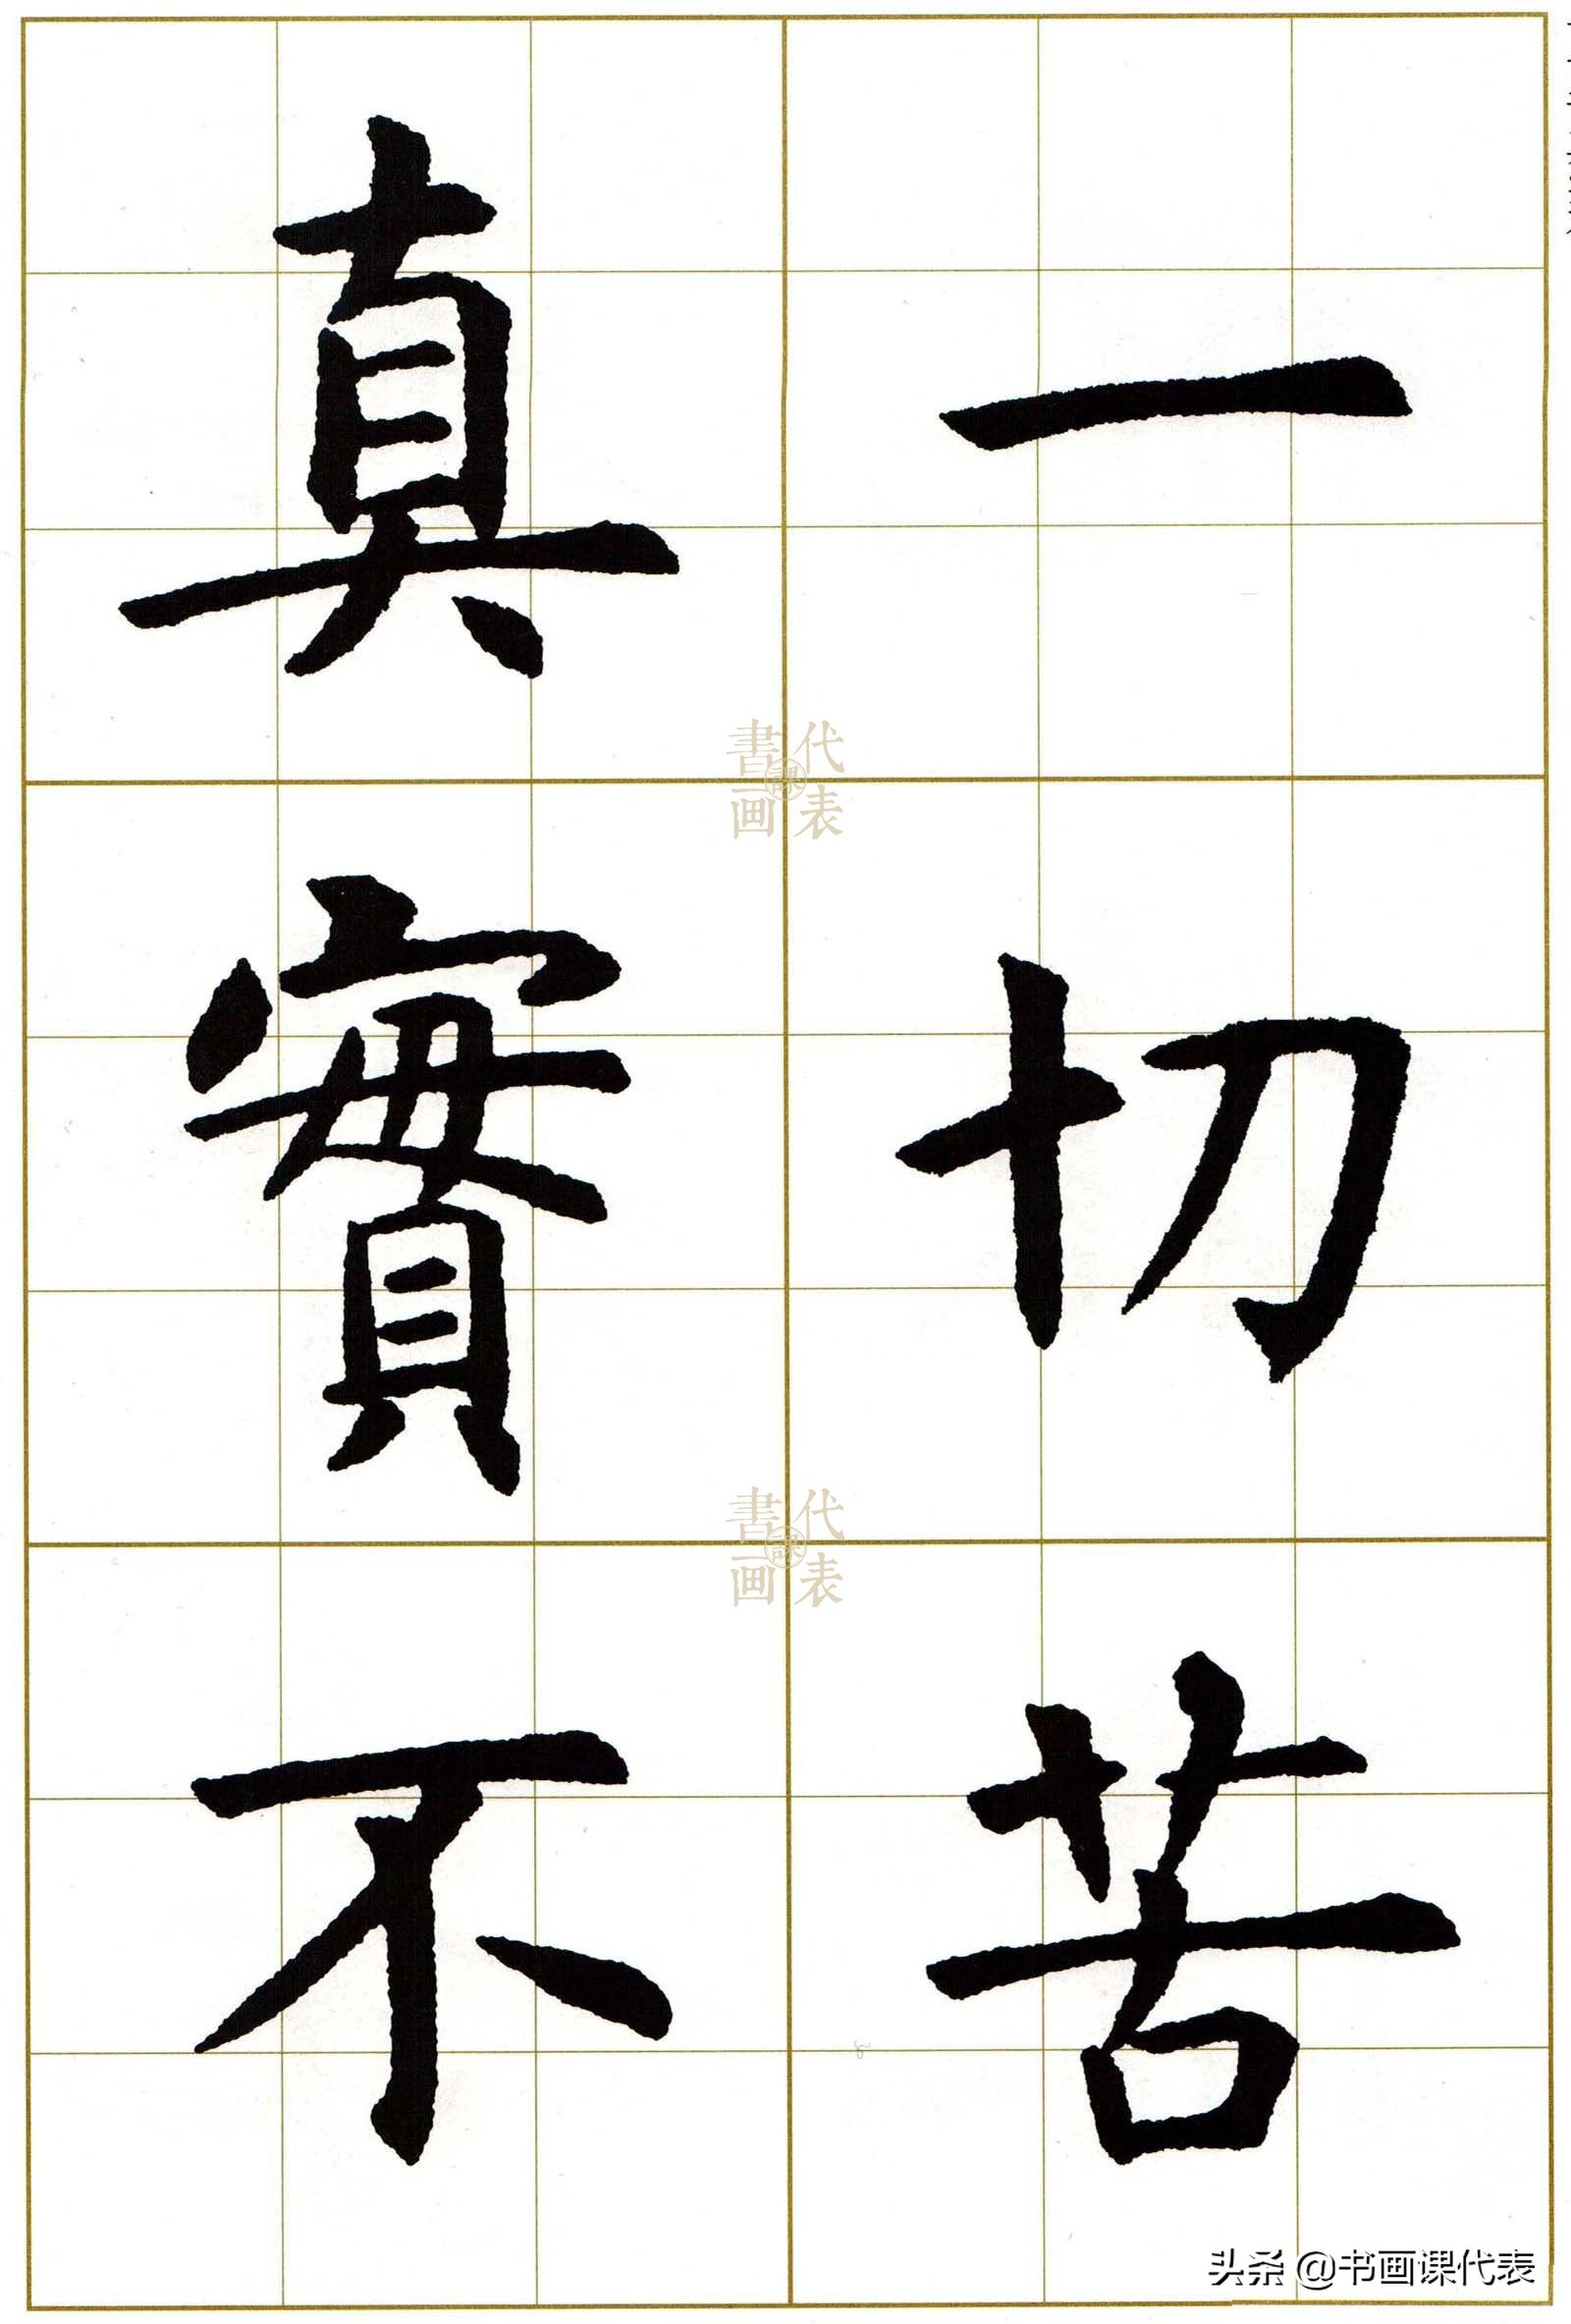 一切苦
真實不
書画課代表
書画課代表
头条 @书画课代表